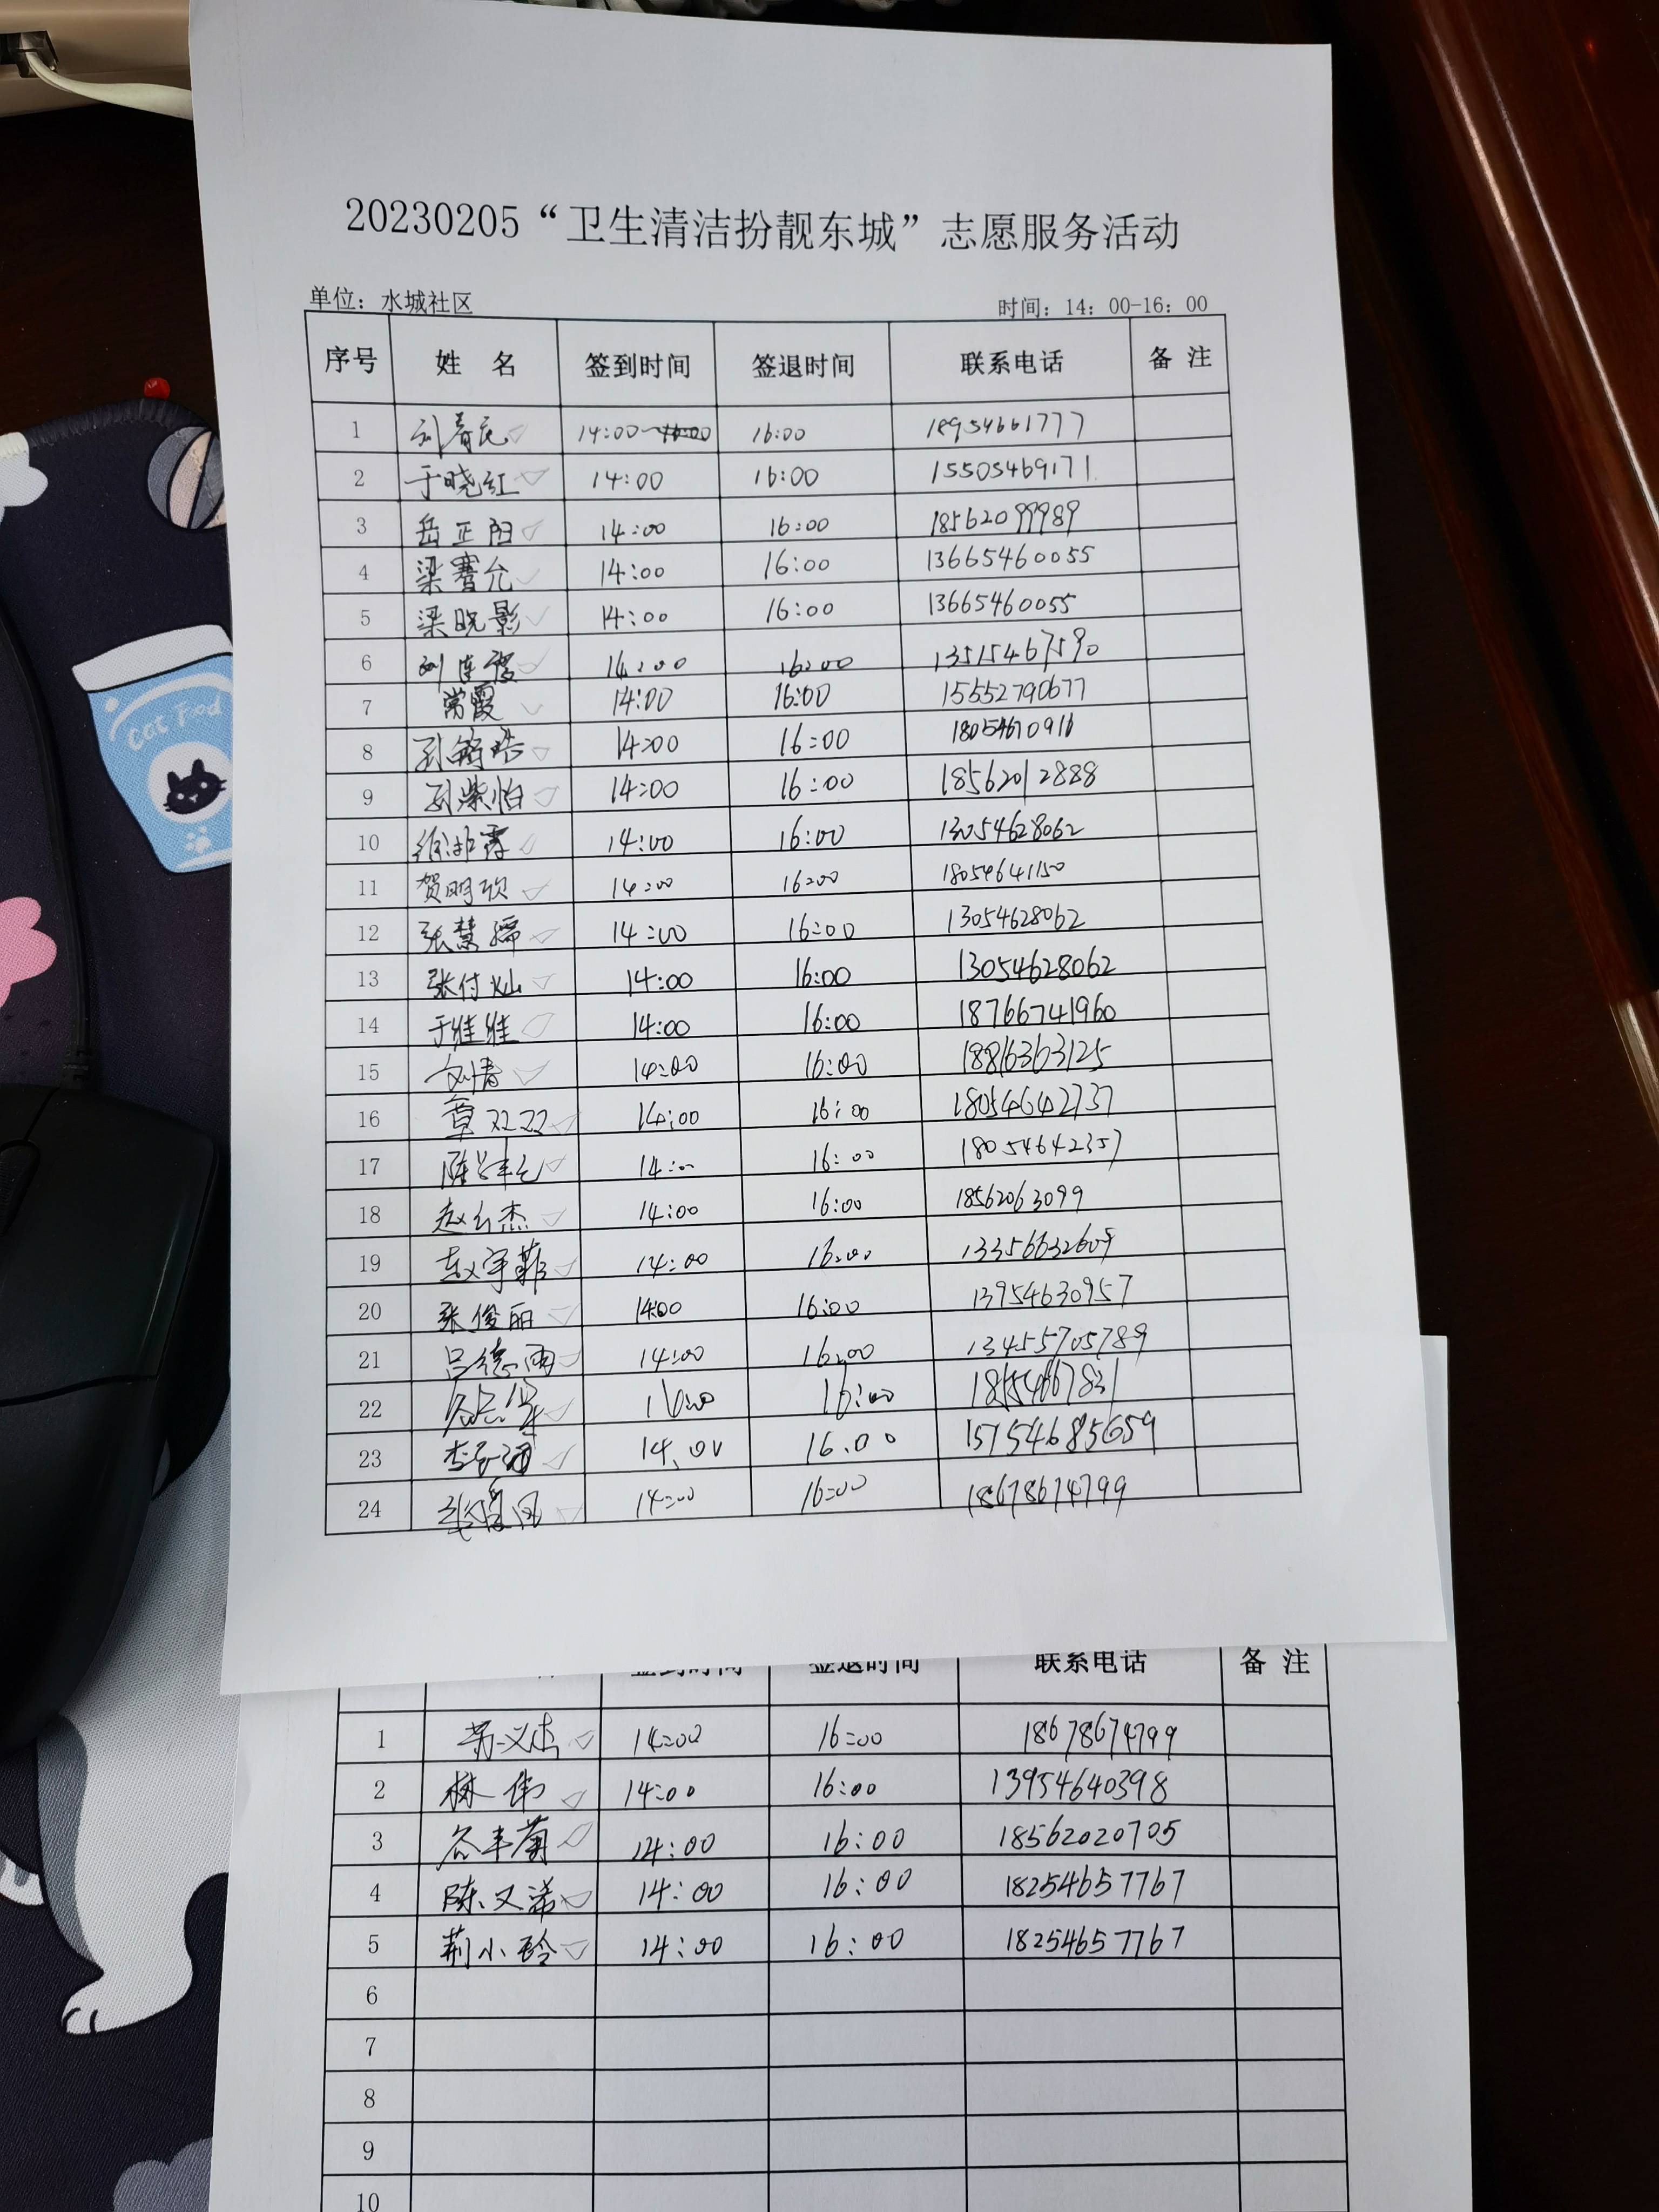 Cat Food
20230205“卫生清洁扮靓东城”志愿服务活动
单位：水城社区 时间：14：00-16：00
序号 姓 名 签到时间 签退时间 联系电话 备 注
1 14:00 16:00 18954661777
2 于晓红 14:00 16:00 15505469171
3 岳正阳 14:00 16:00 18562099989
4 梁 14:00 16:00 13665460055
5 梁晓影 14:00 16:00 13665460055
6 刘 14:00 16:00 13515467590
7 常霞 14:00 16:00 15552790677
8 14:00 16:00 18054670916
9 孙紫怡 14:00 16:00 18562012888
10 14:00 16:00 13054628062
11 贺明欣 14:00 16:00 18054641150
12 张慧 14:00 16:00 13054628062
13 张付灿 14:00 16:00 13054628062
14 于维维 14:00 16:00 18766741960
15 刘青 14:00 16:00 18816363125
16 14:00 16:00 18054642737
17 陈 14:00 16:00 18054642357
18 赵 杰 14:00 16:00 18562063099
19 赵宇菲 14:00 16:00 13356632609
20 张俊丽 14:00 16:00 13954630957
21 吕德雨 14:00 16:00 13455705789
22 16:00
23 李 14.00 16.00 15754685659
24 14:00 16:00 18678674799
签到时间 签退时间 联系电话 备 注
1 14:00 16:00 18678674799
2 林伟 14:00 16:00 13954640398
3 14:00 16:00 18562020705
4 陈又 14:00 16:00 18254657767
5 荆小玲 14:00 16:00 18254657767
6
7
8
9
10